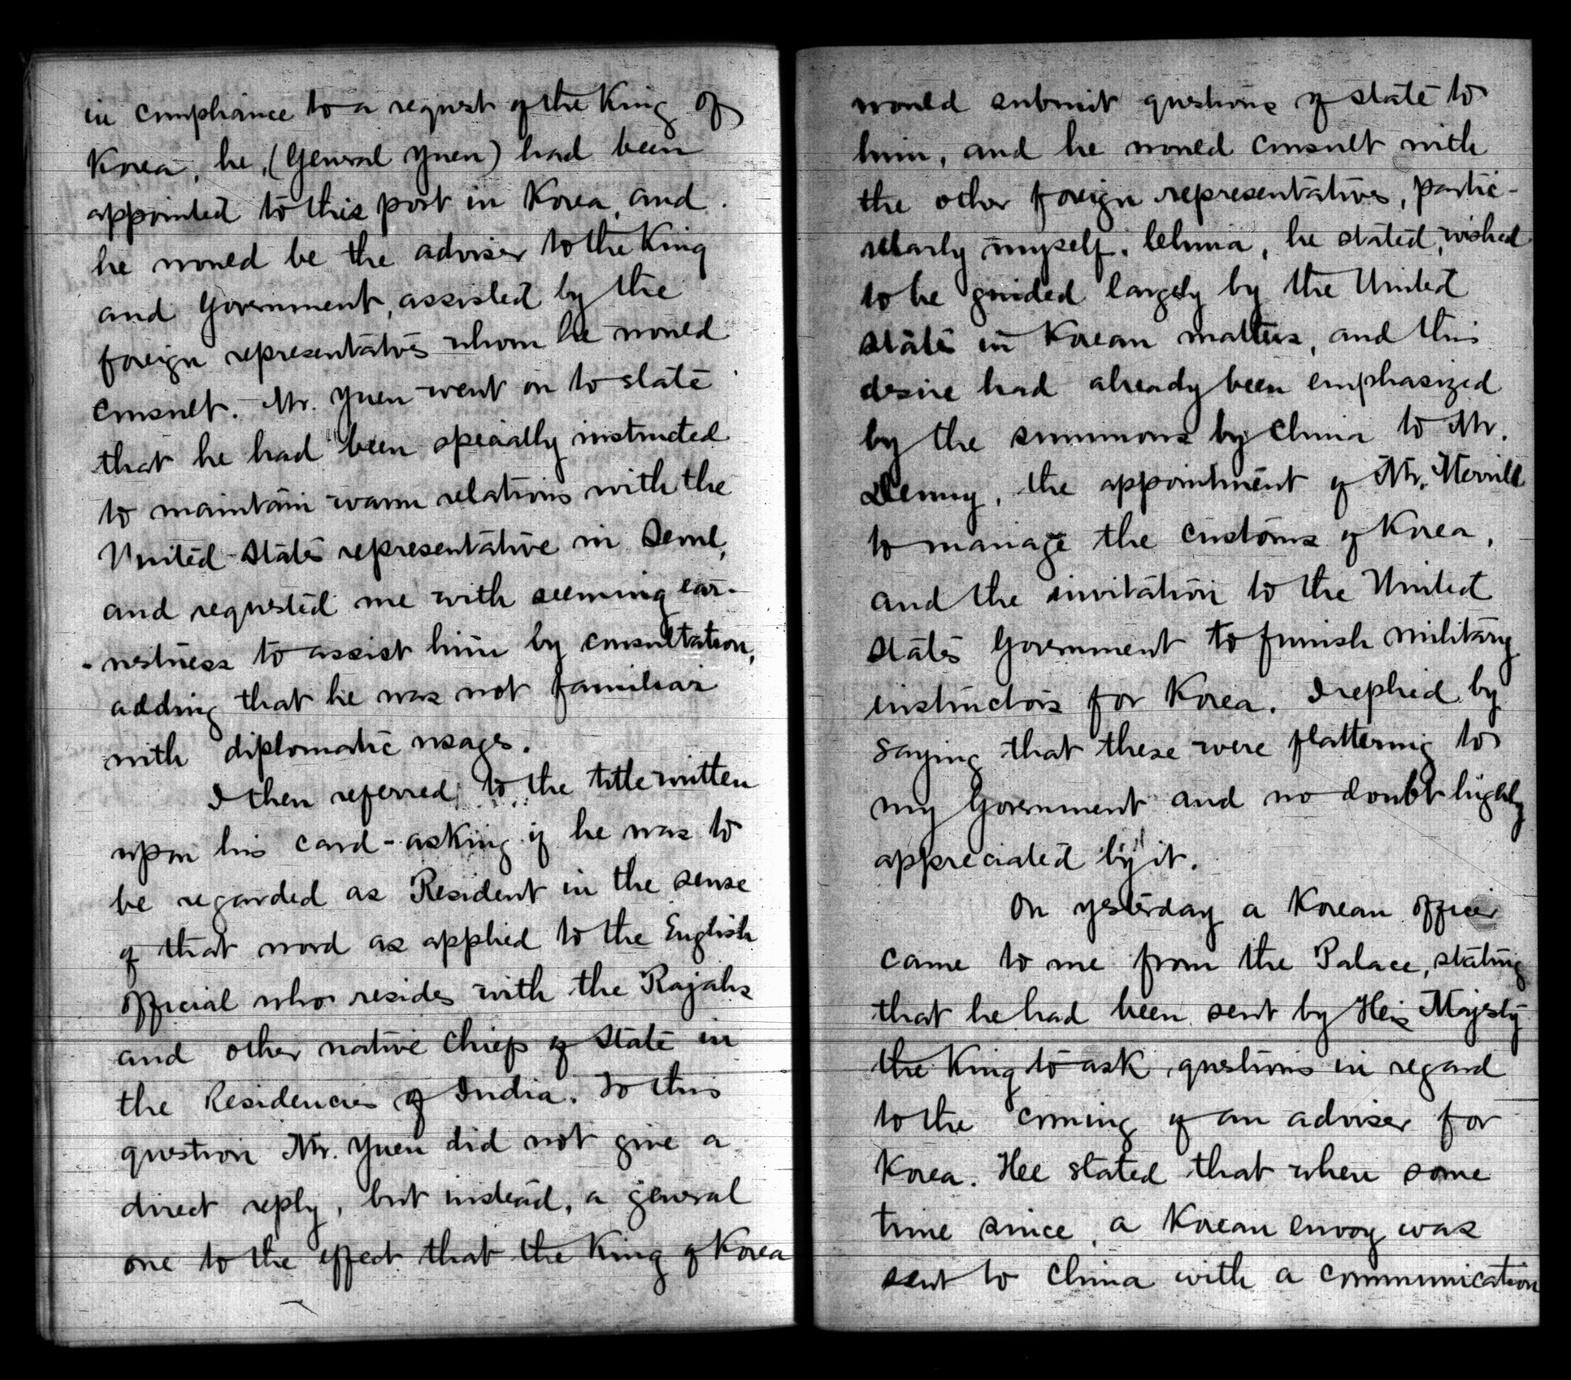 in compliance to a request of the King of
Korea, he, (General Yuen) had been
appointed to this post in Korea, and
he would be the adviser to the King
and Government, assisted by the
foreign representatives whom he would
consult. Mr. Yuen went on to state
that he had been specially instructed
to maintain warm relations with the
United States representative in Seoul,
and requested me with seeming ear-
-nestness to assist him by consultation,
adding that he was not familiar
with diplomatic usages.
I then referred to the title written
upon his card - asking if he was to
be regarded as Resident in the sense
of that word as applied to the English
official who resides with the Rajahs
and other native chiefs of State in
the Residencies of India. To this
question Mr. Yuen did not give a
direct reply, but instead, a general
one to the effect that the King of Korea
would submit questions of state to
him, and he would consult with
the other foreign representatives, partic-
ularly myself. China, he stated, wished
to be guided largely by the United
States in Korean matters, and this
desire had already been emphasized
by the summons by China to Mr.
Denny, the appointment of Mr. Merrill
to manage the customs of Korea,
and the invitation to the United
States Government to furnish military
instructors for Korea. I replied by
saying that these were flattering to
my Government and no doubt highly
appreciated by it.
On yesterday a Korean officer
came to me from the Palace, stating
that he had been sent by His Majesty
the King to ask questions in regard
to the coming of an adviser for
Korea. Hee stated that when some
time since, a Korean envoy was
sent to China with a communication